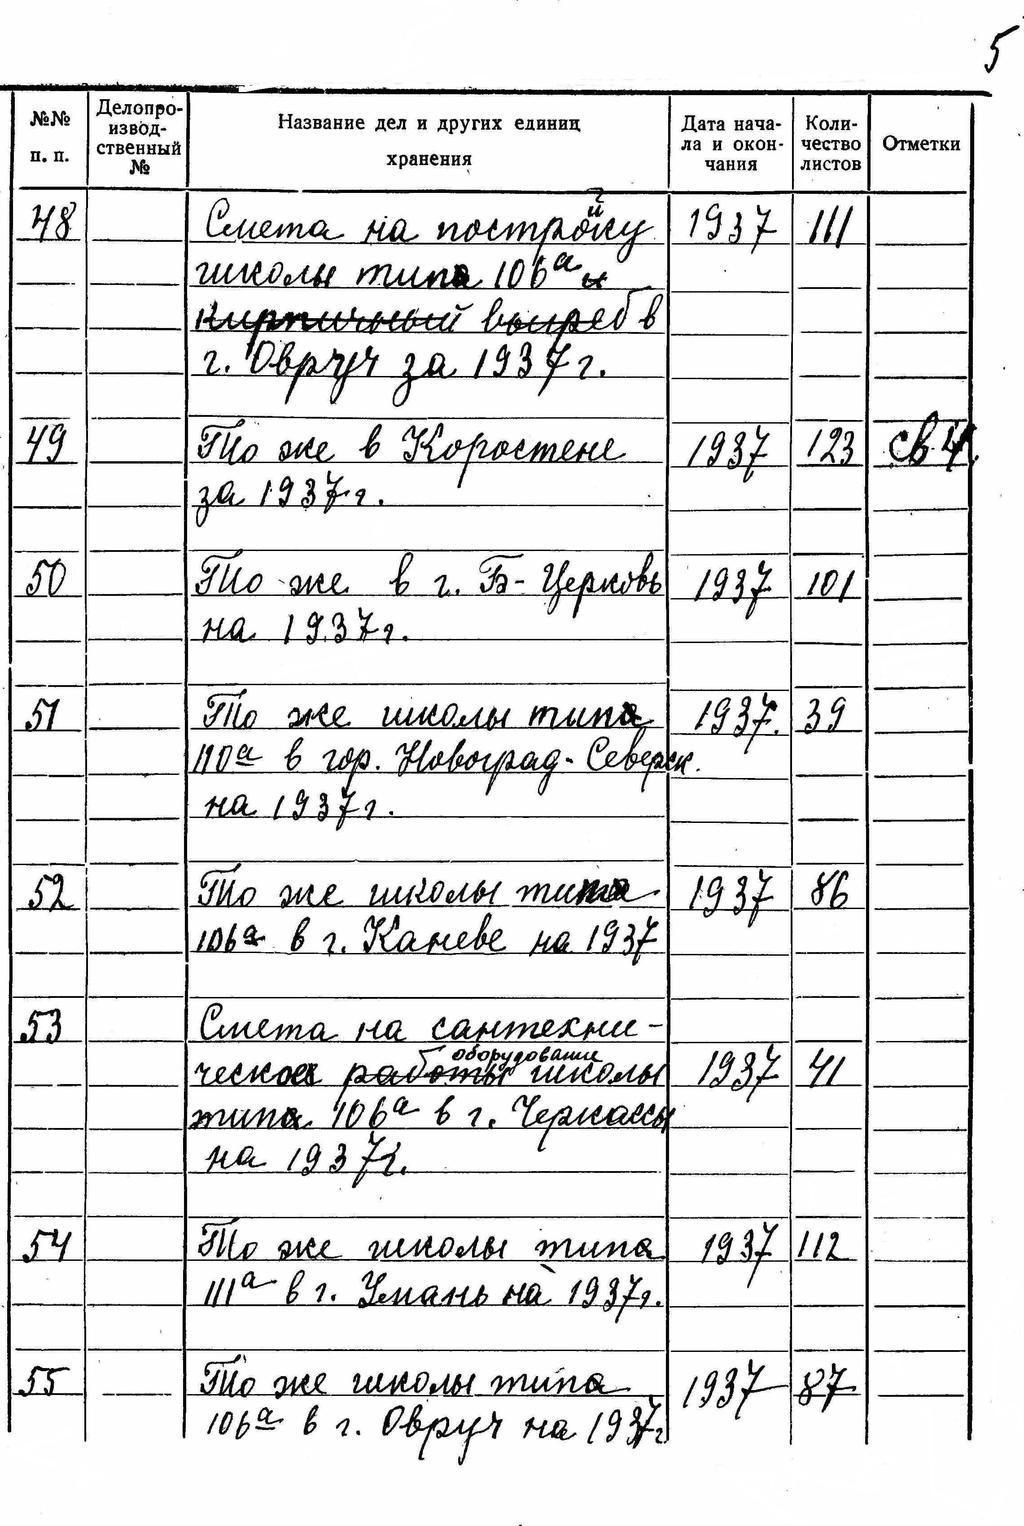 5
№№ п. п. Делопроизводственный № Название дел и других единиц хранения Дата начала и окончания Количество листов Отметки
48 Смета на постройку 1937 111
школы типа 106а и
кирпичный выгреб в
г. Овруч за 1937 г.
49 То же в Коростене 1937 123 св 4
за 1937 г.
50 То же в г. Б-Церковь 1937 101
на 1937 г.
51 То же школы типа 1937. 39
110а в гор. Новоград-Северск.
на 1937 г.
52 То же школы типа 1937 86
106а в г. Каневе на 1937
53 Смета на сантехни-
оборудование
ческое работы школы 1937 41
типа 106а в г. Черкассы
на 1937 г.
54 То же школы типа 1937 112
111а в г. Умань на 1937 г.
55 То же школы типа 1937 87
106а в г. Овруч на 1937 г